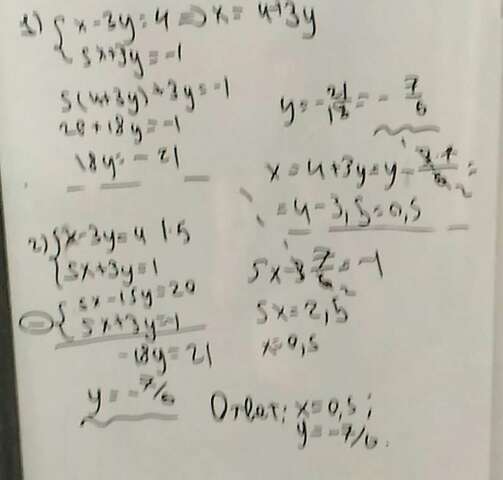 1) { x - 3y = 4 => x = 4+3y
5x+3y = -1
5(4+3y)+3y = -1
20 + 18y = -1
18y = -21
y = -21/18 = -7/6
x = 4+3y = 4 - 3·7/6 =
= 4 - 3,5 = 0,5
2) { x-3y=4 |·5
5x+3y=1
- { 5x-15y=20
5x+3y=-1
-18y = 21
y = -7/6
5x-3 7/6 = -1
5x = 2,5
x=0,5
Ответ: x=0,5;
y=-7/6.